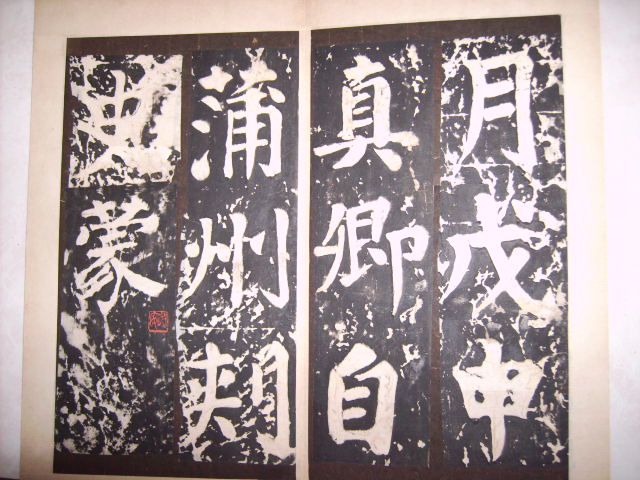 月戊申
真卿自
蒲州刾
史蒙